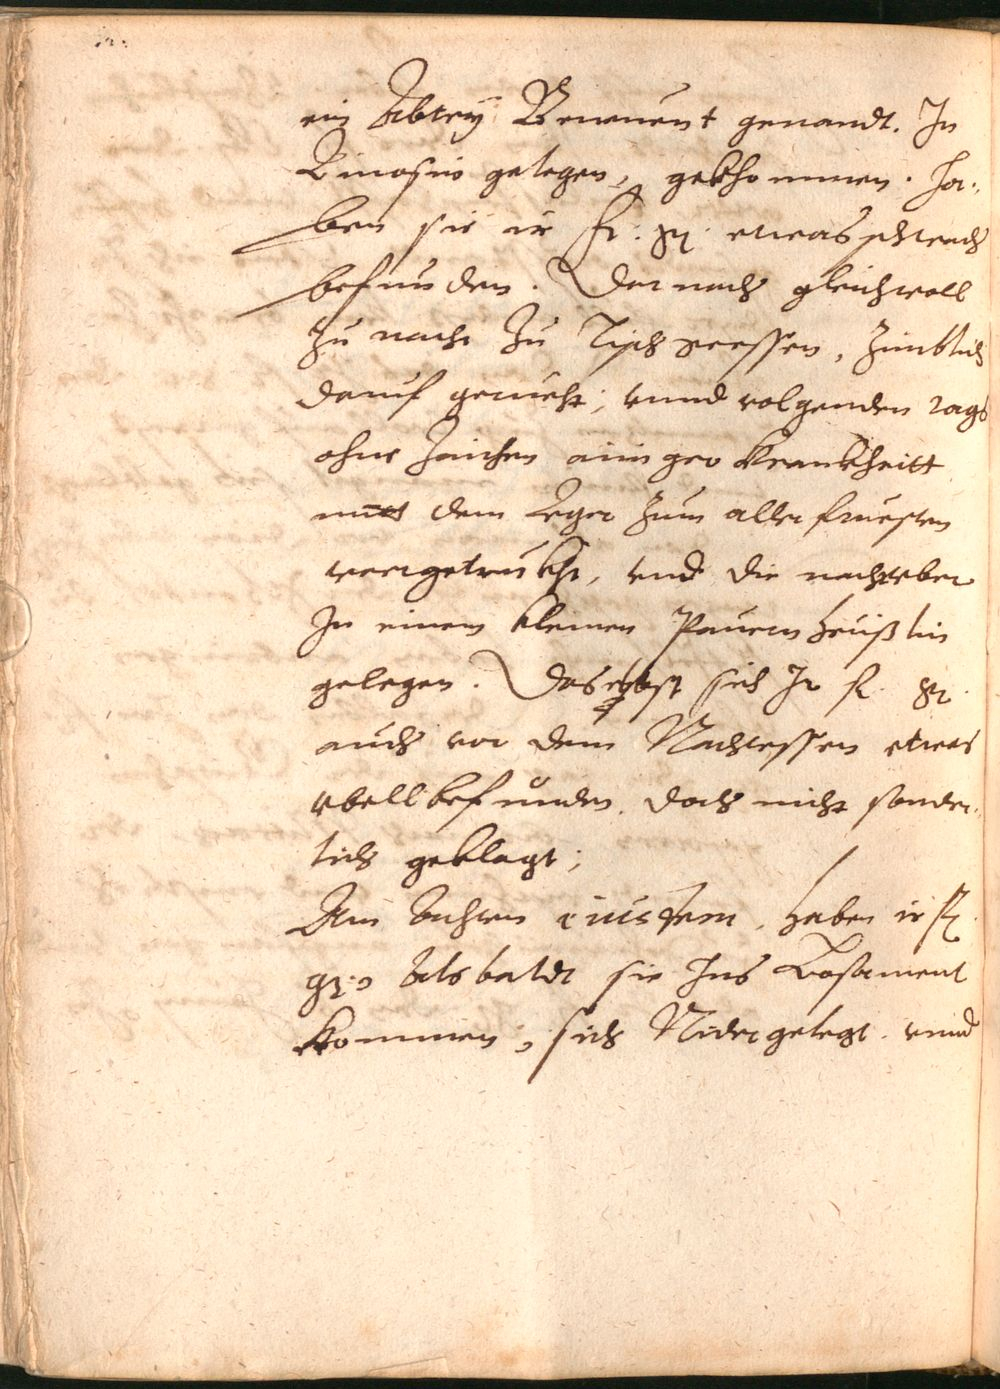 ein Abtey Beneuent genandt. In
Limosin gelegen, gekhommen. ha:
ben sie ir fr: gn: etwas schwach
befunden. Dernach gleichwoll
zu nacht zu Tisch gesessen, zimblich
daruf gerueht, vnnd volgenden tags
ohne zaichen ainiger Krankheitt
mit dem Leger zum aller fruesten
verrgetrukht, vnd die nacht vber
In einem kleinen Pauern heüßlin
gelegen. Daselbst sich Ir fr. gn.
auch vor dem Nachtessen etwas
vbell befunden. doch nicht sonder-
lich geklagt;
Am Achten eiusdem, haben ir fr.
gn: Alsbaldt sie Ins Losament
kommen, sich Nidergelegt. vnnd